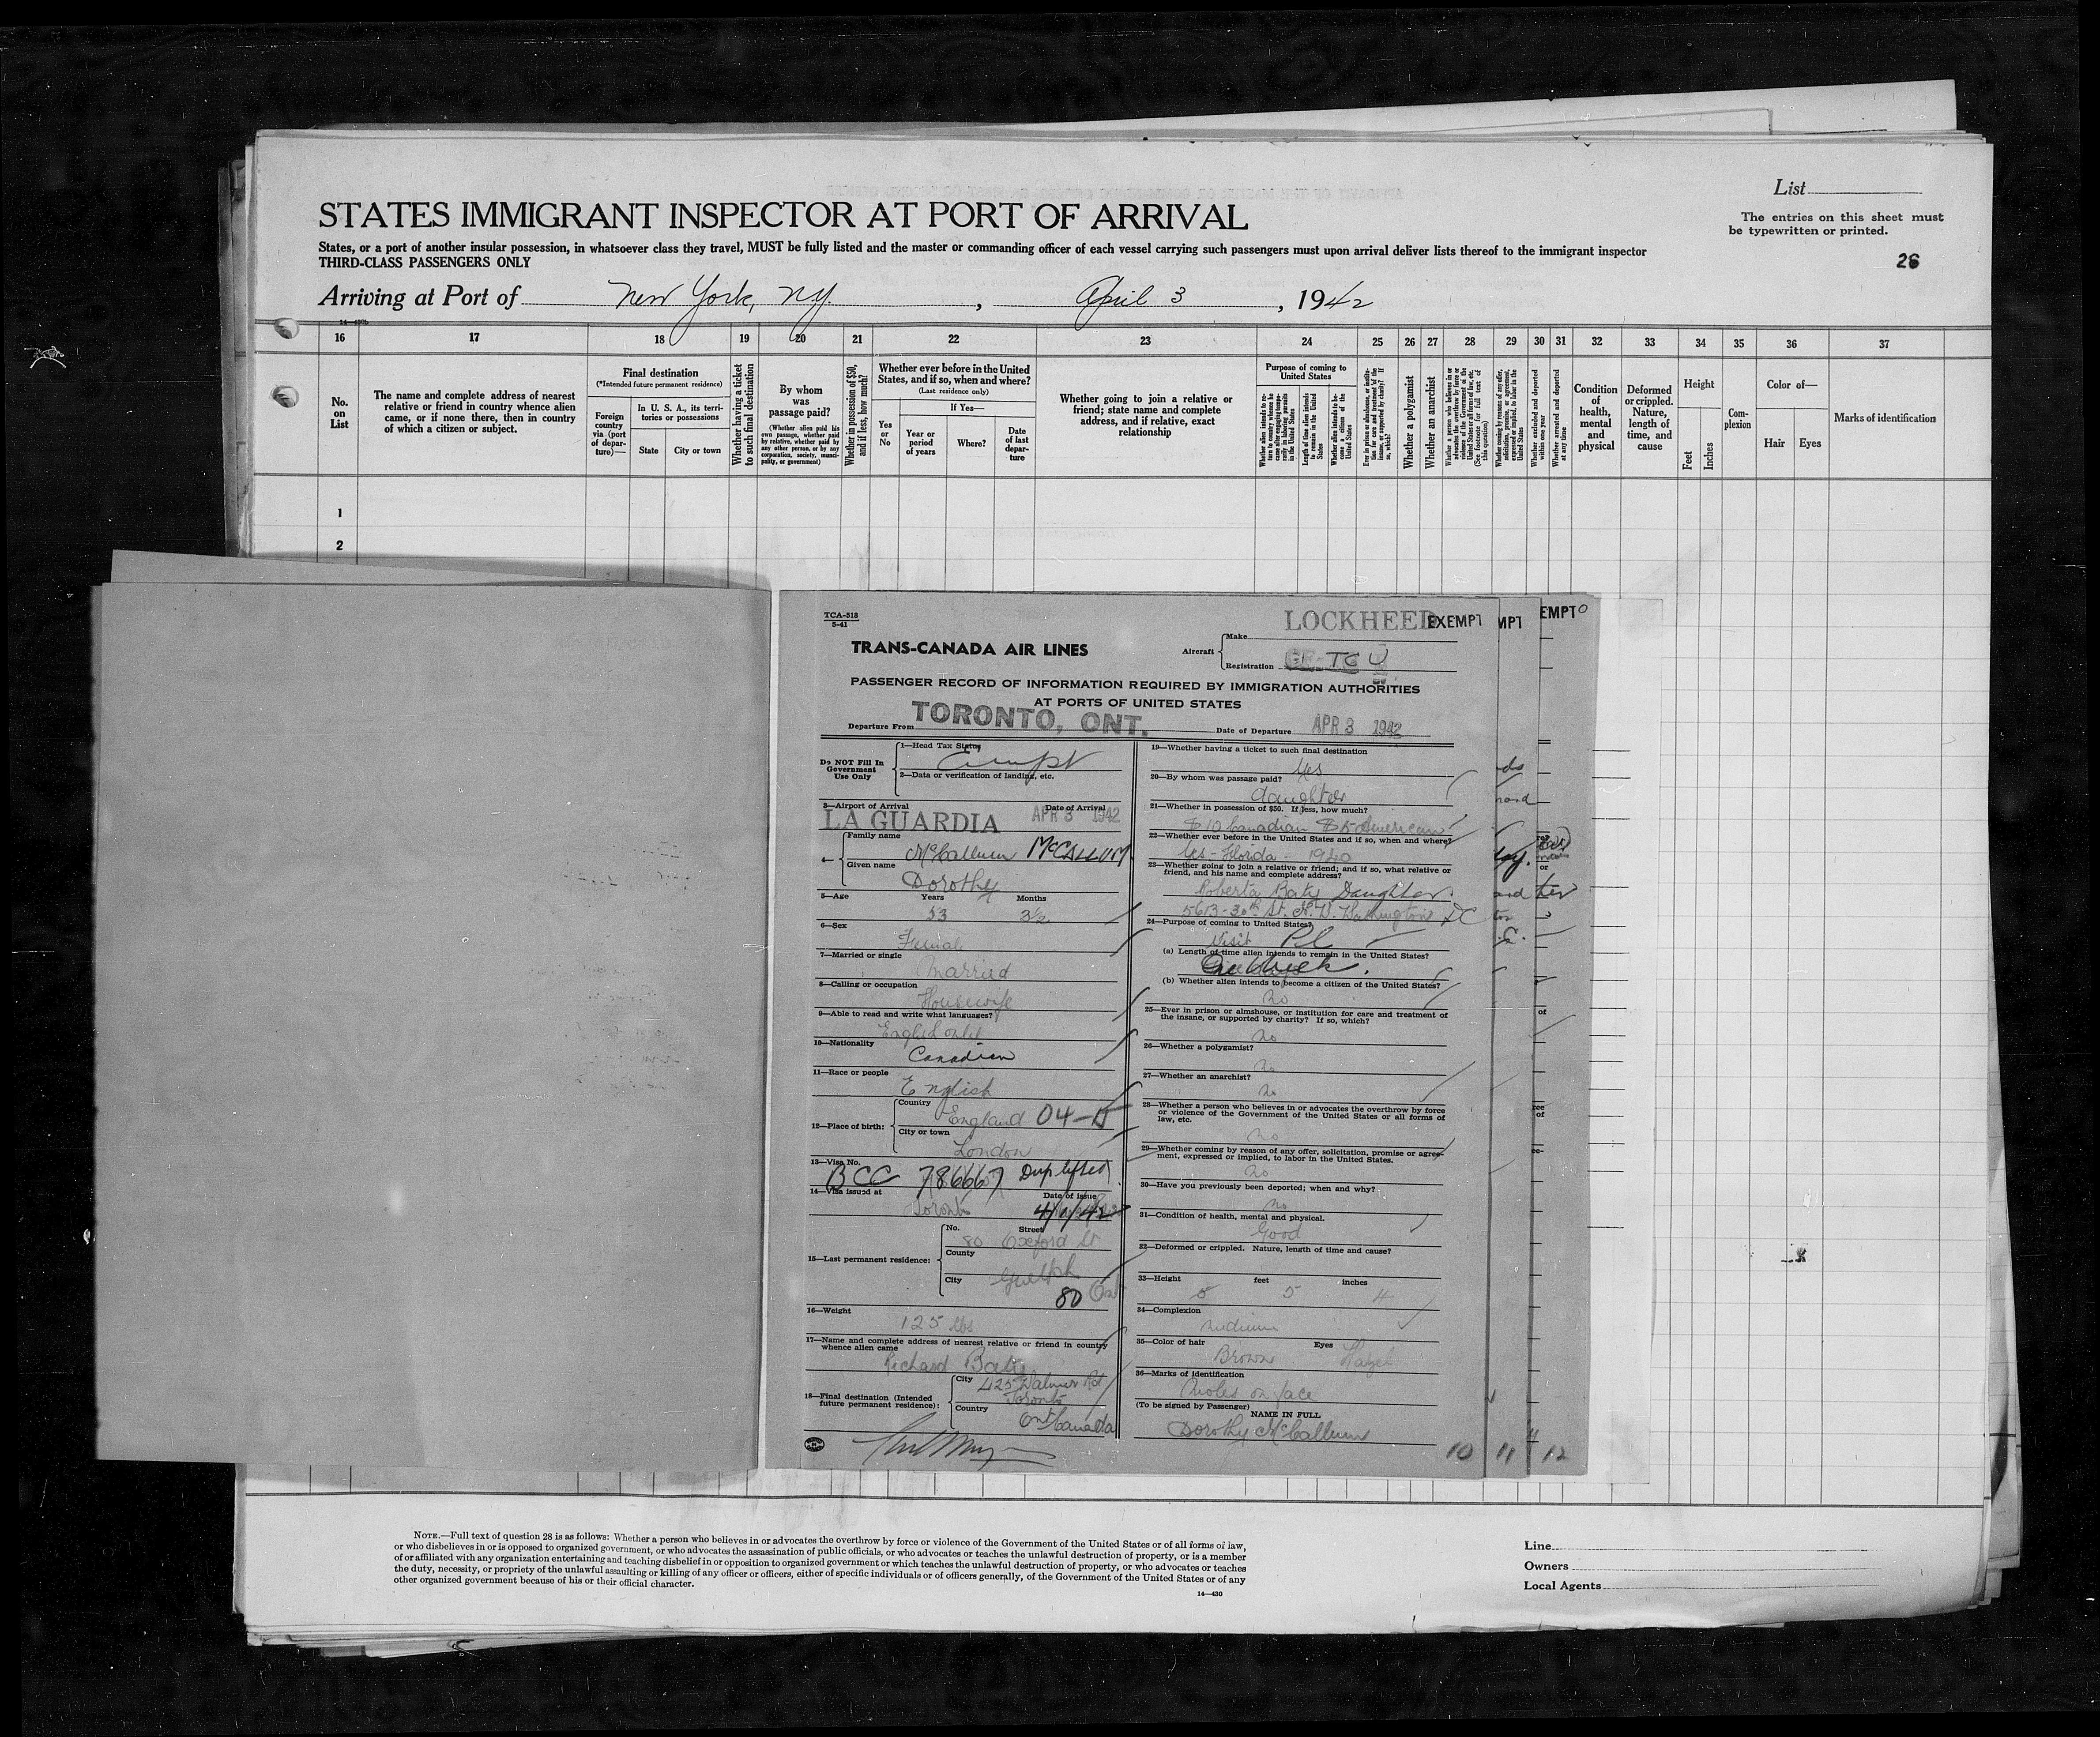 List
STATES IMMIGRANT INSPECTOR AT PORT OF ARRIVAL
The entries on this sheet must
be typewritten or printed.
States, or a port of another insular possession, in whatsoever class they travel, MUST be fully listed and the master or commanding officer of each vessel carrying such passengers must upon arrival deliver lists thereof to the immigrant inspector
THIRD-CLASS PASSENGERS ONLY
26
Arriving at Port of New York, N.Y. , April 3 , 1942
16 17 18 19 20 21 22 23 24 25 26 27 28 29 30 31 32 33 34 35 36 37
No. on List
The name and complete address of nearest relative or friend in country whence alien came, or if none there, then in country of which a citizen or subject.
Final destination
(*Intended future permanent residence)
Foreign country via (port of departure)—
In U. S. A., its territories or possessions
State
City or town
Whether having a ticket to such final destination
By whom was passage paid?
(Whether alien paid his own passage, whether paid by relative, whether paid by any other person, or by any corporation, society, municipality, or government)
Whether in possession of $50, and if less, how much?
Whether ever before in the United States, and if so, when and where?
(Last residence only)
Yes or No
If Yes—
Year or period of years
Where?
Date of last departure
Whether going to join a relative or friend; state name and complete address, and if relative, exact relationship
Purpose of coming to United States
Length of time alien intends to remain in the United States
Whether alien intends to become a citizen of the United States
Whether a polygamist
Whether an anarchist
Whether excluded and deported within one year
Whether arrested and deported at any time
Condition of health, mental and physical
Deformed or crippled. Nature, length of time, and cause
Height
Feet
Inches
Complexion
Color of—
Hair
Eyes
Marks of identification
1
2
TCA-518
5-41
LOCKHEED
EXEMPT
MPT
EMPT
TRANS-CANADA AIR LINES
Aircraft
Make
Registration TCU
PASSENGER RECORD OF INFORMATION REQUIRED BY IMMIGRATION AUTHORITIES
AT PORTS OF UNITED STATES
Departure From TORONTO, ONT. Date of Departure APR 3 1942
Do NOT Fill In Government Use Only
1—Head Tax Status
Exempt
2—Data or verification of landing, etc.
3—Airport of Arrival Date of Arrival
LA GUARDIA APR 3 1942
4— Family name
McCallum McCALLUM
Given name
Dorothy
5—Age Years Months
53 3½
6—Sex
Female
7—Married or single
Married
8—Calling or occupation
Housewife
9—Able to read and write what languages?
English only
10—Nationality
Canadian
11—Race or people
English
12—Place of birth: Country
England 04-
City or town
London
13—Visa No.
BCC 786667 Dup lifted
14—Visa issued at Date of issue
Toronto 4/1/42
15—Last permanent residence: No. Street
80 Oxford St
County
City
Guelph Ont
80
16—Weight
125 lbs
17—Name and complete address of nearest relative or friend in country
whence alien came
Richard Baty
18—Final destination (Intended
future permanent residence): City
425 Walmer Rd
Toronto
Country
Ont Canada
19—Whether having a ticket to such final destination
Yes
20—By whom was passage paid?
daughter
21—Whether in possession of $50. If less, how much?
$10 Canadian $5 American
22—Whether ever before in the United States and if so, when and where?
Yes - Florida - 1940
23—Whether going to join a relative or friend; and if so, what relative or
friend, and his name and complete address?
Roberta Baty Daughter
5613-30th St. N.W. Washington DC
24—Purpose of coming to United States?
Visit Pl
(a) Length of time alien intends to remain in the United States?
One Week.
(b) Whether alien intends to become a citizen of the United States?
no
25—Ever in prison or almshouse, or institution for care and treatment of
the insane, or supported by charity? If so, which?
no
26—Whether a polygamist?
no
27—Whether an anarchist?
no
28—Whether a person who believes in or advocates the overthrow by force
or violence of the Government of the United States or all forms of
law, etc.
no
29—Whether coming by reason of any offer, solicitation, promise or agree-
ment, expressed or implied, to labor in the United States.
no
30—Have you previously been deported; when and why?
no
31—Condition of health, mental and physical.
Good
32—Deformed or crippled. Nature, length of time and cause?
33—Height feet inches
5 5 4
34—Complexion
medium
35—Color of hair Eyes
Brown Hazel
36—Marks of identification
Moles on face
(To be signed by Passenger)
NAME IN FULL
Dorothy McCallum
10 11 12
NOTE.—Full text of question 28 is as follows: Whether a person who believes in or advocates the overthrow by force or violence of the Government of the United States or of all forms of law,
or who disbelieves in or is opposed to organized government, or who advocates the assassination of public officials, or who advocates or teaches the unlawful destruction of property, or is a member
of or affiliated with any organization entertaining and teaching disbelief in or opposition to organized government or which teaches the unlawful destruction of property, or who advocates or teaches
the duty, necessity, or propriety of the unlawful assaulting or killing of any officer or officers, either of specific individuals or of officers generally, of the Government of the United States or of any
other organized government because of his or their official character.
14—430
Line
Owners
Local Agents